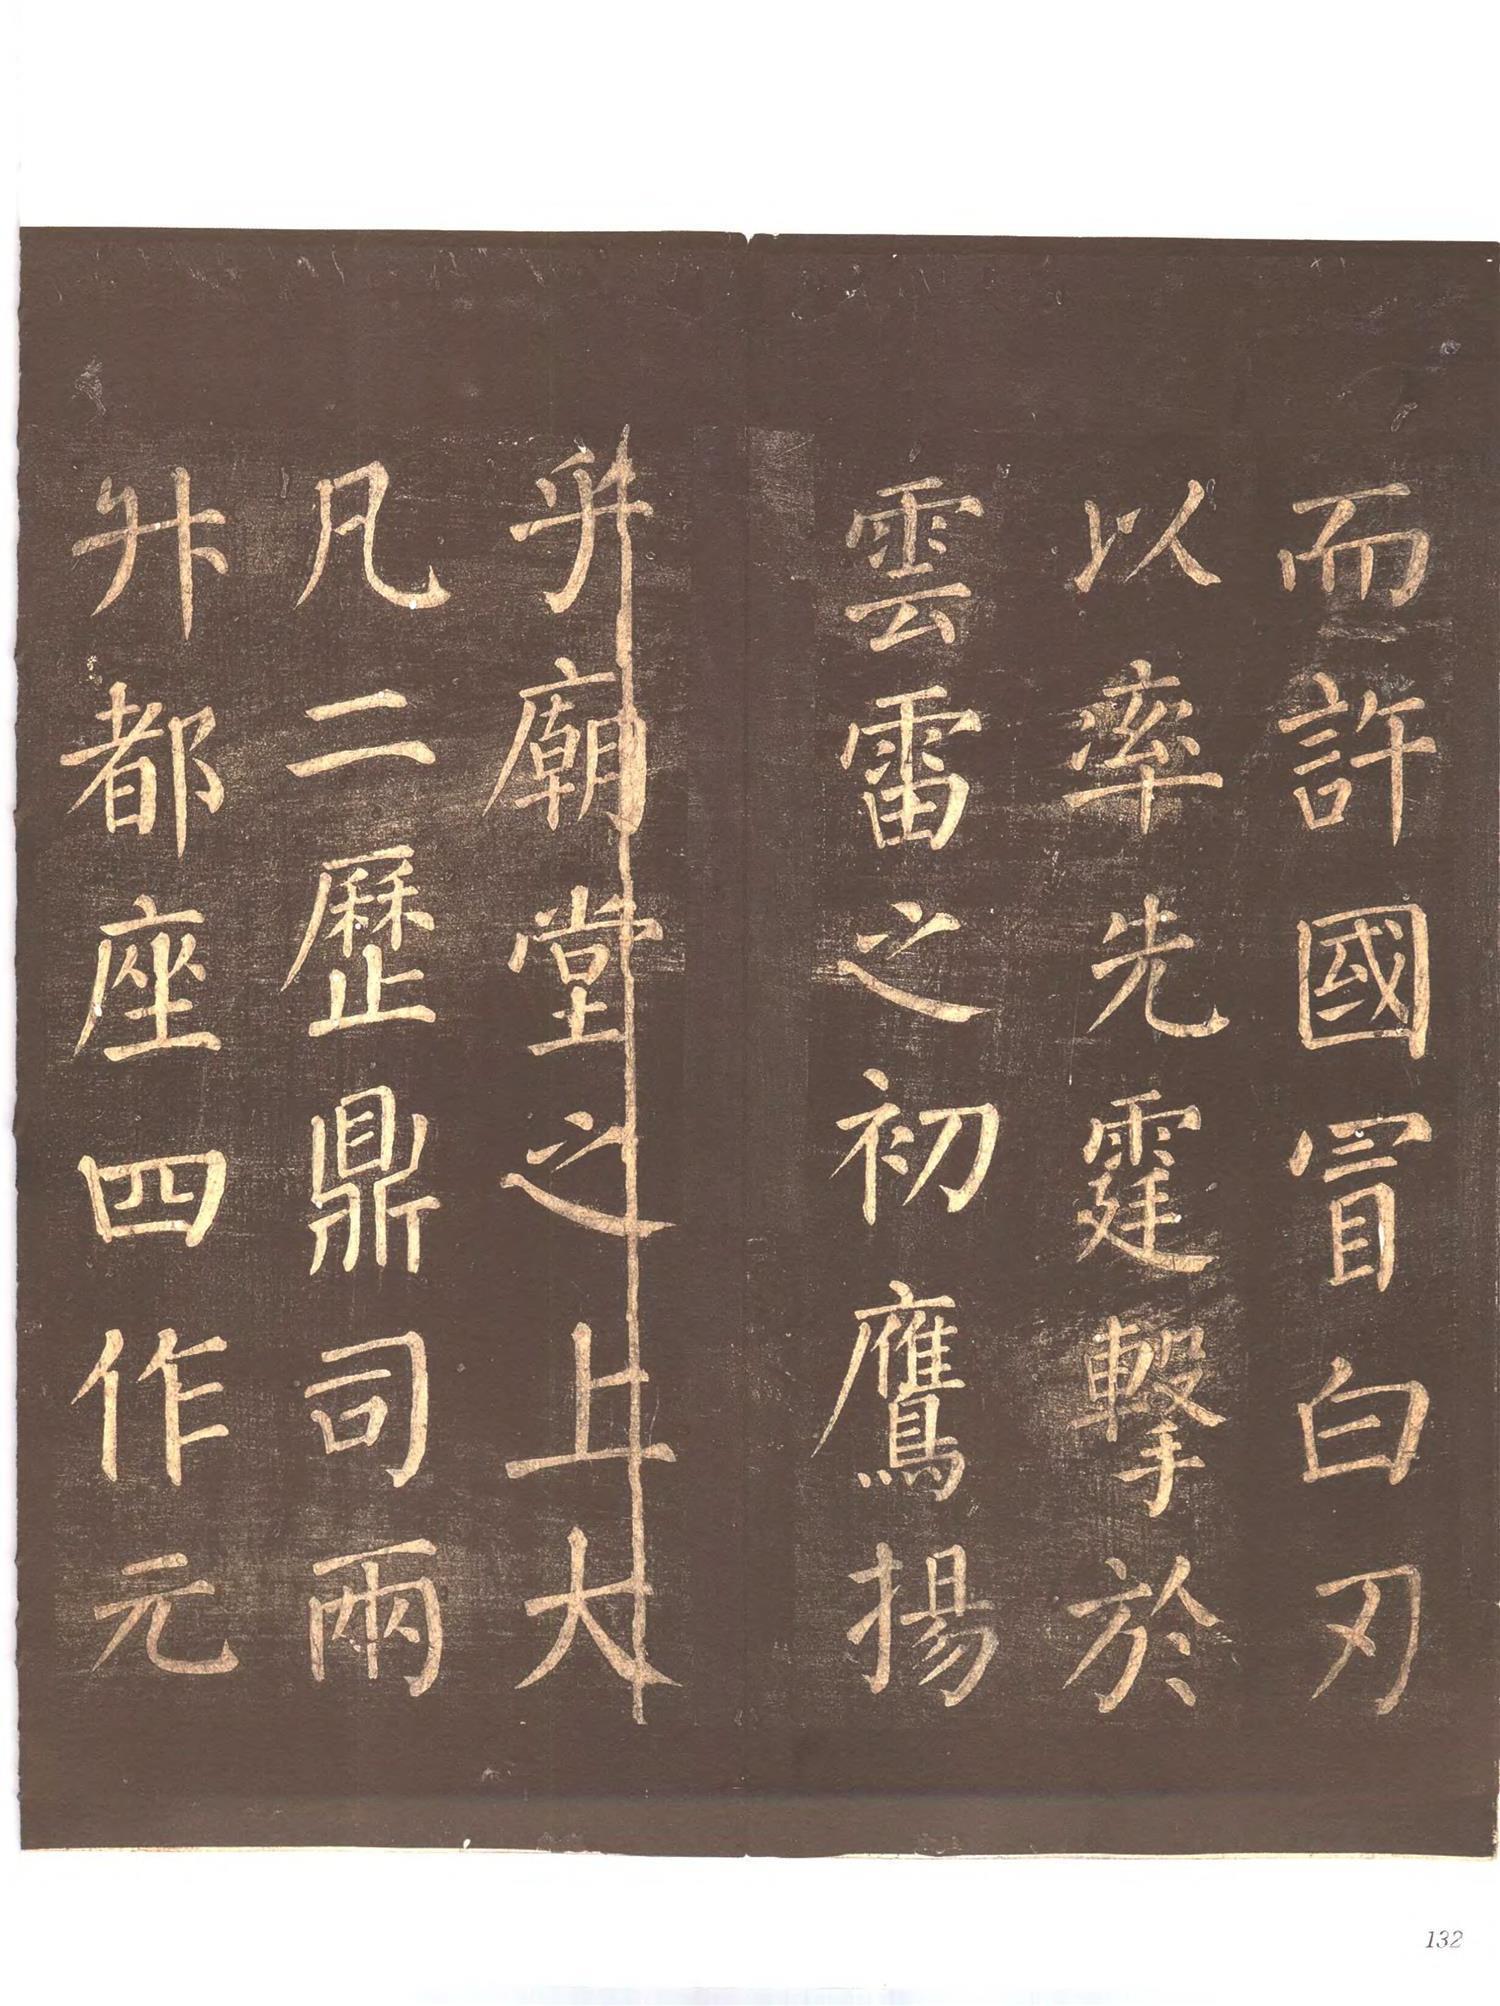 而許國冒白刃
以率先霆擊於
雲雷之初鷹揚
於廟堂之上大
凡二歷鼎司兩
升都座四作元
132